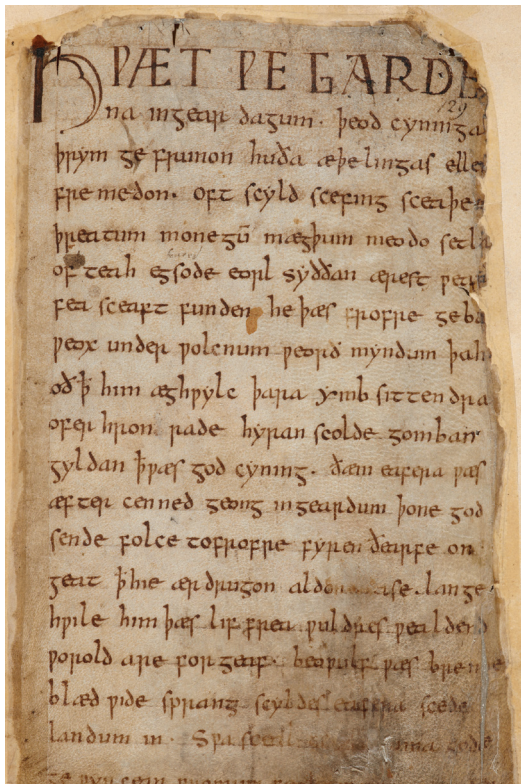 HǷÆT ǷE GARDE
129
na ingear dagum · þeod cyninga
þrym ge frunon huða æþelingas elle
fre medon. oft scyld scefing sceaþe
þreatum monegū mægþum meodo setla
of teah egsode eorl syððan ærest ƿear
fea sceaft funden he þæs frofre geba
ƿeox under ƿolcnum ƿeorð myndum þah
oð ꝥ him æghƿylc þara ymb sittendra
ofer hron rade hyran scolde gomban
gyldan ꝥ ƿæs god cyning. ðæm eafera ƿæs
æfter cenned geong ingeardum þone god
sende folce tofrofre fyren ðearfe on
geat ꝥ hie ær drugon aldor ase. lange
hƿile him þæs lif frea ƿuldres ƿealdend
ƿorold are for geaf. beoƿulf ƿæs breme
blæd ƿide sprang scyldes eafera scede
landum in. Sƿa sceal uma gode
ge ƿyrcean fromum